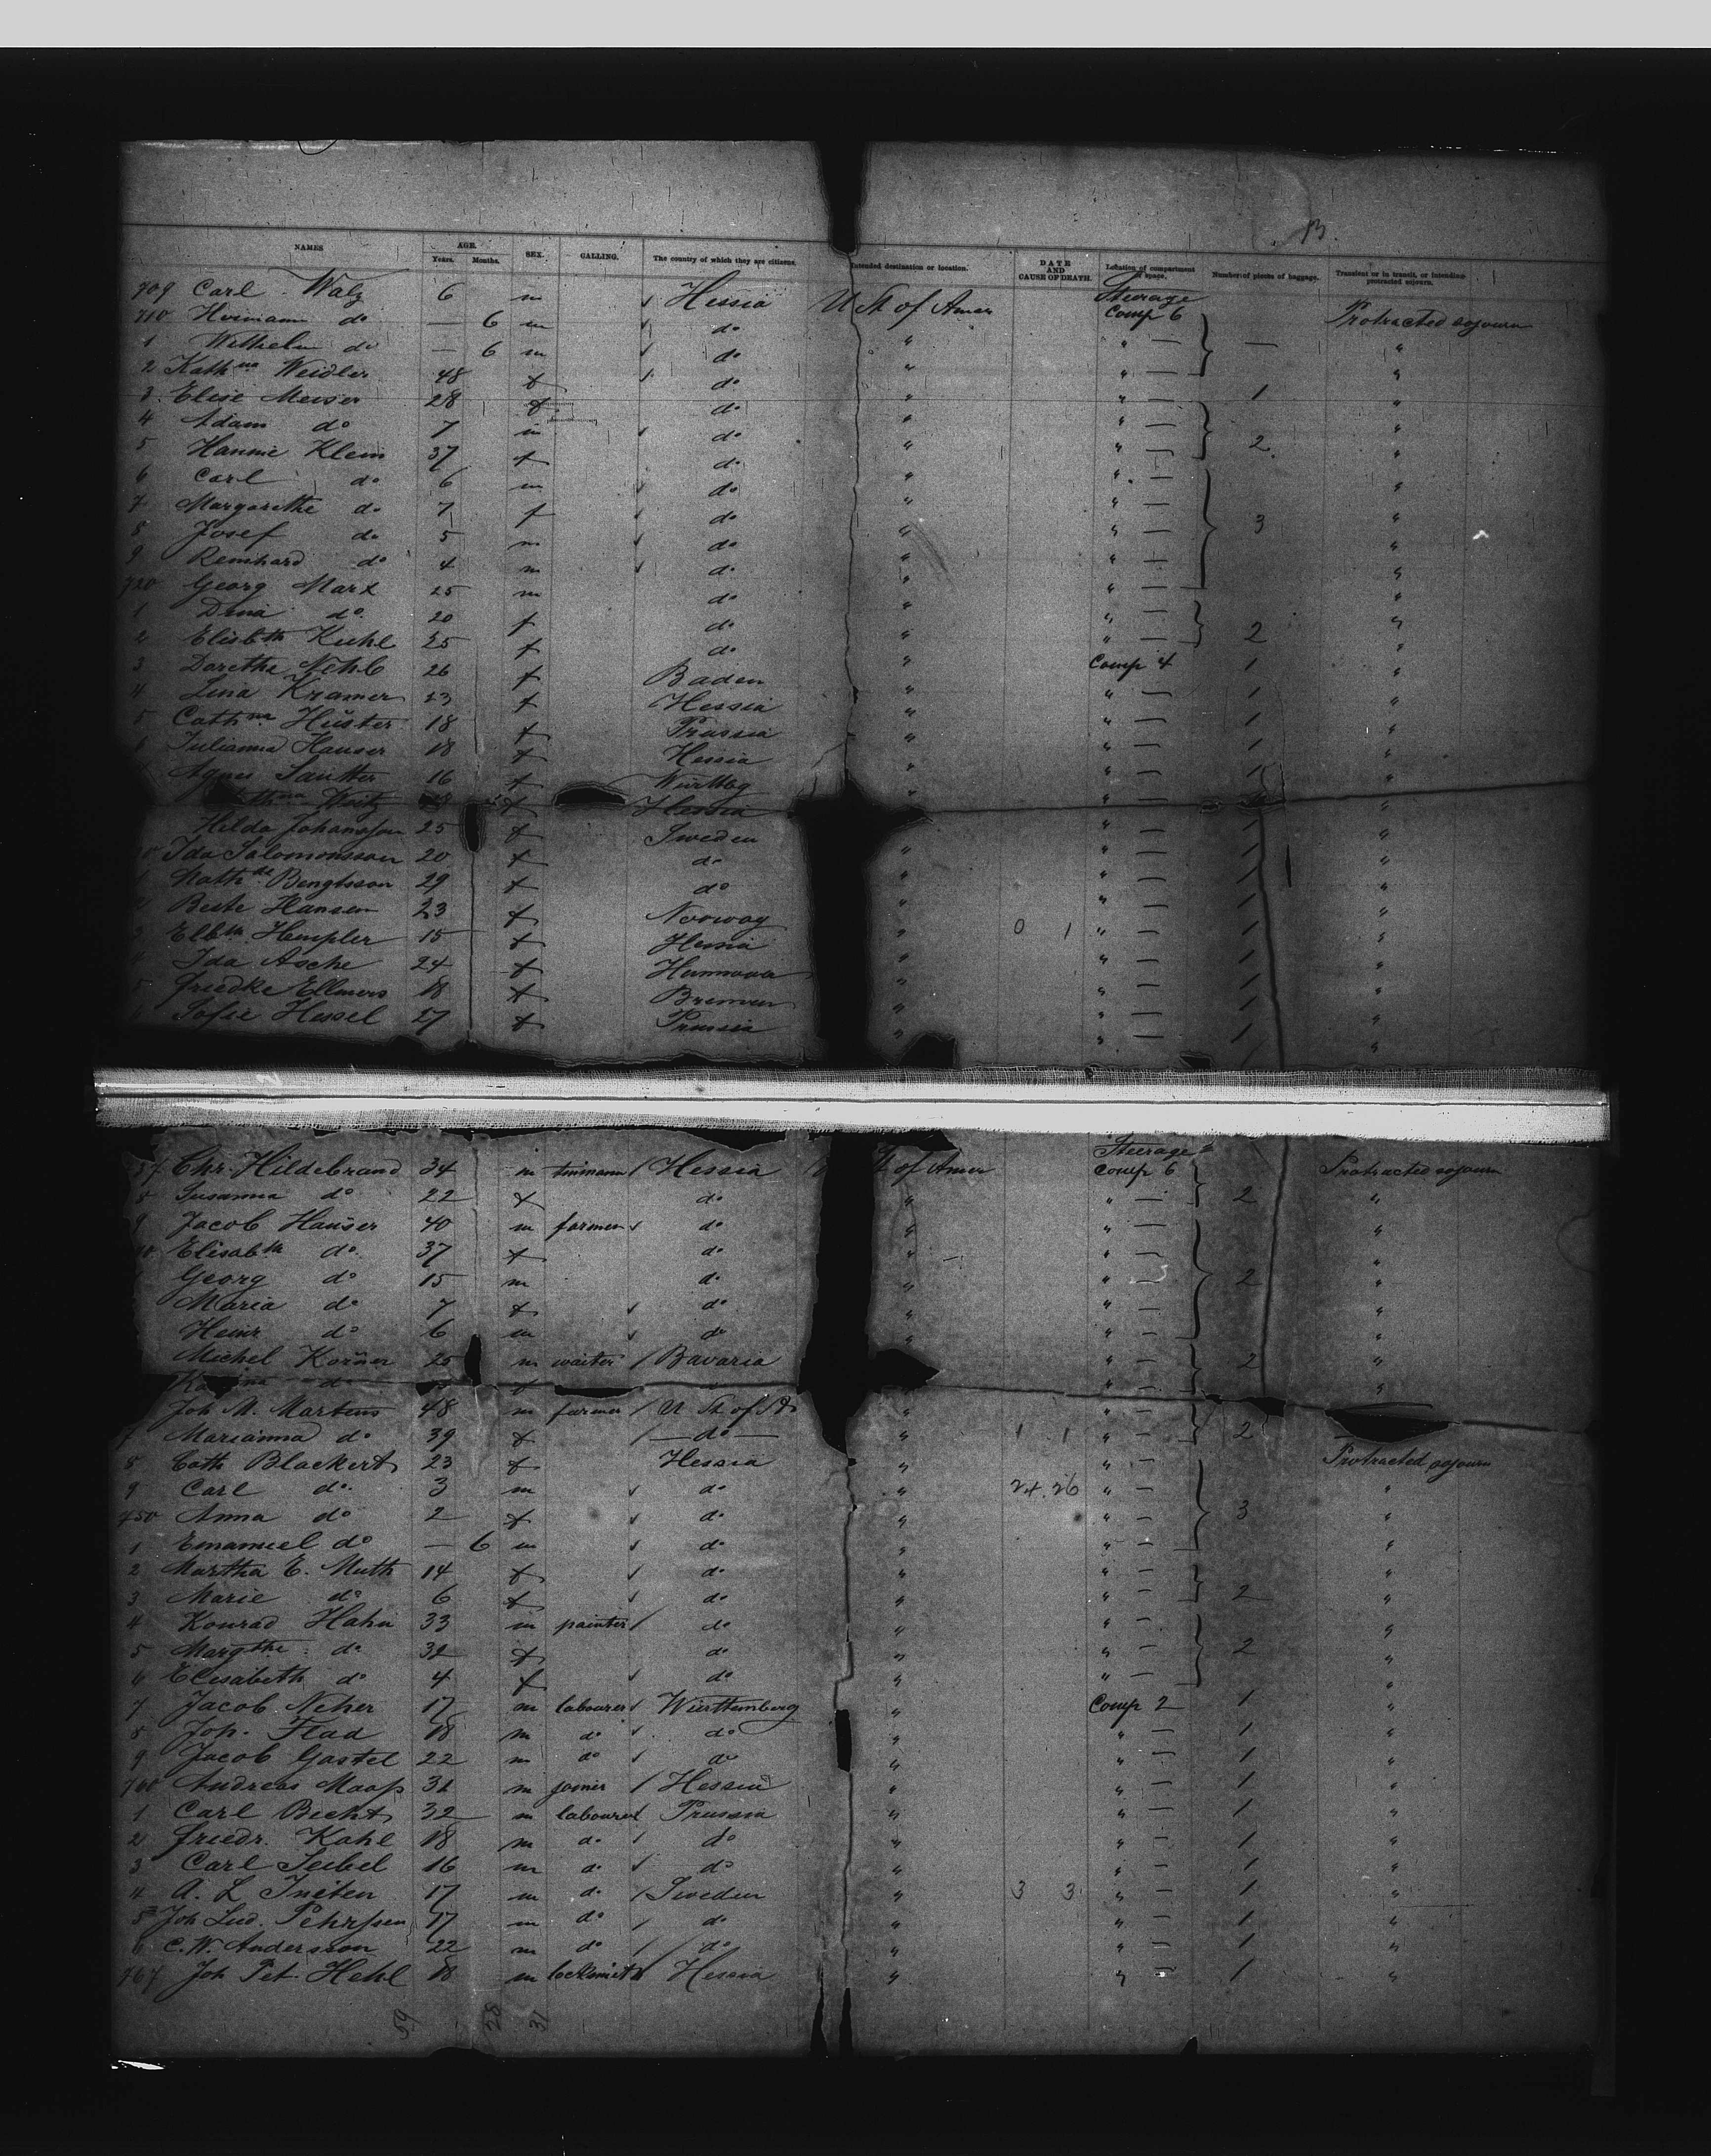 13.
NAMES AGE. Years. Months. SEX. CALLING. The country of which they are citizens. Intended destination or location. DATE AND CAUSE OF DEATH. Location of compartment or space. Number of pieces of baggage. Transient or in transit, or intending protracted sojourn.
Steerage
709 Carl Walz 6 m Hessia U St of Amer Comp 6 Protracted sojourn
710 Hermann do — 6 m do " " — — "
1 Wilhelm do — 6 m do " " — "
2 Kathna Weidler 48 f do " " — 1 "
3 Elise Meiser 28 f do " " — "
4 Adam do 7 m do " " — 2 "
5 Hannie Klein 37 f do " " — "
6 Carl do 6 m do " " — "
7 Margarethe do 7 f do " " — 3 "
8 Josef do 5 m do " " — "
9 Reinhard do 4 m do " " — "
720 Georg Marx 25 m do " " — "
1 Dina do 20 f do " " — 2 "
2 Elisbth Kuhl 25 f do " Comp 4 1 "
3 Dorethe Nehlb 26 f Baden " " — 1 "
4 Lina Kramer 23 f Hessia " " — 1 "
5 Cathna Hüster 18 f Prussia " " — 1 "
6 Julianna Hauser 18 f Hessia " " — 1 "
Agnes Sautter 16 f Württbg " " — "
Weitz f Hessia " " — "
Hilda Johansson 25 f Sweden " " — 1 "
Ida Salomonsson 20 f do " " — 1 "
Mathde Bengtsson 29 f do " " — 1 "
Beste Hansen 23 f Norway " 0 1 " — 1 "
3 Elbth Hempler 15 f Hessia " " — 1 "
Ida Asche 24 f Hannover " " — 1 "
Friedke Ellmers 18 f Bremen " " — 1 "
Sofie Hessel 27 f Prussia " " — 1 "
Steerage
37 Chr. Hildebrand 34 m tinmann Hessia St of Amer Comp 6 Protracted sojourn
8 Susanna do 22 f do " " — 2 "
9 Jacob Hauser 40 m farmer do " " — "
Elisabth do 37 f do " " — "
Georg do 15 m do " " — 2 "
Maria do 7 f do " " — "
Heinr do 6 m do " " — "
Michel Körner 25 m waiter Bavaria " — 2 "
do f " — "
Joh N. Martens 48 m farmer U St of A " " —
7 Marianna do 39 f — do — " 1 1 " — 2 —
8 Cath Blackert 23 f Hessia " " — Protracted sojourn
9 Carl do 3 m do " 24.26 " — "
750 Anna do 2 f do " " — 3 "
1 Emanuel do — 6 m do " " — "
2 Martha E. Muth 14 f do " " — "
3 Marie do 6 f do " " — 2 "
4 Konrad Hahn 33 m painter do " " — "
5 Margthe do 32 f do " " — 2 "
6 Elisabeth do 4 f do " " — "
7 Jacob Neher 17 m labourer Württemberg " Comp 2 1 "
8 Joh. Flad 18 m do do " " — 1 "
9 Jacob Gastel 22 m do do " " — 1 "
760 Andreas Maass 31 m joiner Hessia " " — 1 "
1 Carl Becht 32 m labourer Prussia " " — 1 "
2 Friedr. Kahl 18 m do do " " — 1 "
3 Carl Seibel 16 m do do " " — 1 "
4 A. L 17 m do Sweden " 3 3 " — 1 "
5 Joh Lud. Pehrssen 17 m do do " " — 1 "
6 C. W. Andersson 22 m do do " " — 1 "
767 Joh Pet Hehl 18 m locksmith Hessia " " — 1 "
59 28 31